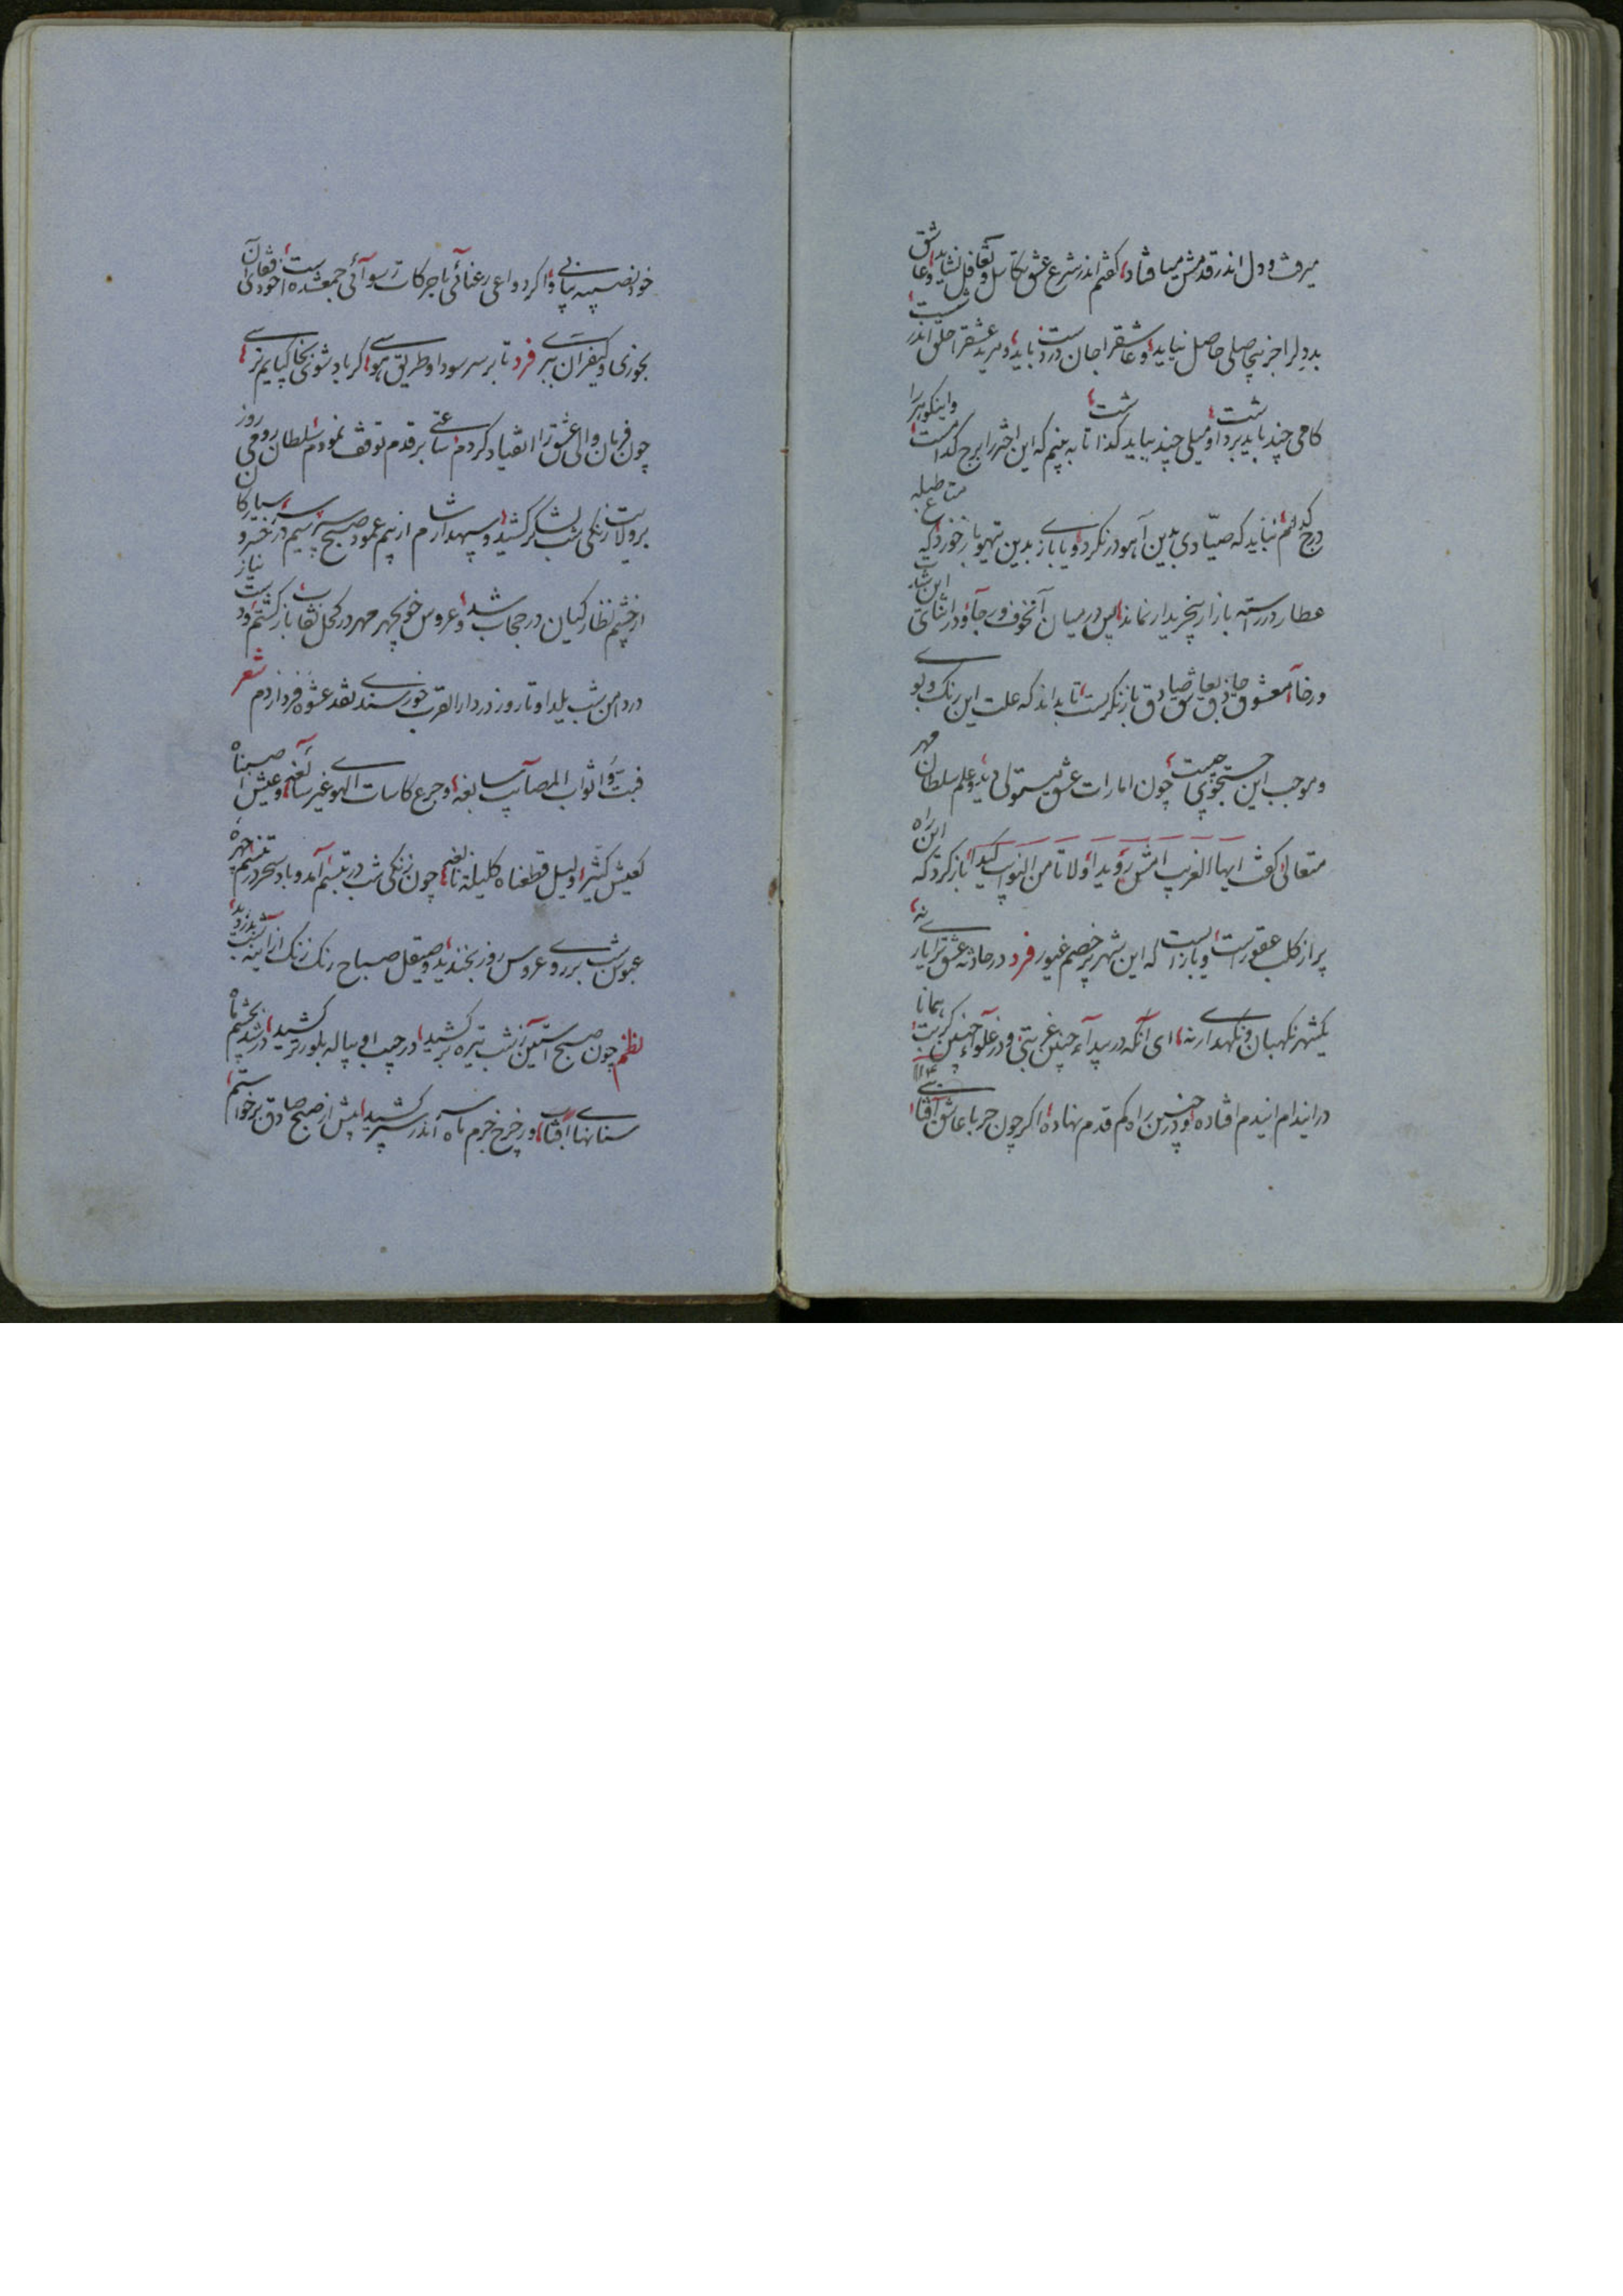 میرفت و دل اندر قدمش میافتاد، گفتم اندر شرع عشق تکاسل و تغافل نشاید، و عاشق
بددل را جز بیحاصلی حاصل نیاید، و عاشقرا جان در دست باید، و مرید عشقرا حلق اندر شست
کامی چند بباید برداشت، و میلی چند بباید گذاشت، تا به بینم که این اختر را برج کدامست، و این گوهر را
درج کدام، نباید که صیادی بدین آهو در نگرد، و یا بازی بدین تیهو باز خورد، که متاع طبله
عطار در رسته بازار بیخریدار نماند، پس در میان آنخوف و رجا، و در اثنای این شدت
و رخا معشوق حاذق بعاشق صادق باز نگریست، تا بداند که علت این رنگ و بوی
و موجب این جستجوی چیست، چون امارات عشق مستولی دید، و علم سلطان مهر
متعالی گفت ایها الغریب امش رویدا، و لا تأمن النوائب کیدا، باز گرد که این راه
پر از کلب عقورست، و بازاریست که این شهر پر خصم غیور فرد در حادثه عشق ترا یاری نه،
یکشهر نگهبان و نگهداری نه، ای آنکه در بیدآء چنین غربتی و در غلوآء چنین کربت، همانا
در ایندام ایندم افتادهٔ، و در چنین راه کم قدم نهادهٔ، اگر چون حربا عاشق آفتابی
۱۱۴
خود نصیبه بیابی، و اگر دواعی رعنائی با حرکات رسوائی جمع شده است، قفای آن خودی
بخوری و کیفر آن ببری فرد تا بر سر سودا و طریق هوسی، گر باد شوی بخاکپایم نرسی،
چون فرمان والی عشق را انقیاد کردم، ساعتی بر قدم توقف نمودم، سلطان رومی روز
بر ولایت زنگی شب لشکر کشید، و سپهدار شام از بیم عمود صبح سپر سیم در سر کشید، خسرو سیارکان
از چشم نظارکیان در حجاب شد، و عروس خوبچهر مهر در کحل نقاب، بازگشتم دست نیاز
در دامن شب یلدا و تا روز در دار القرب خورسندی نقد عشوه فردا زدم شعر
فبت و اثواب المصآئب سابغه، و جرع کاسات الهوی غیر سآئغه، و عیش صبناه
کعیش کثیر، و لیل قطعناه کلیلة نابغه، چون زنکی شب در تبسم آمد، و باد سحر در تنسم، چهره
عبوس شب بر روی عروس روز بخندید، و صیقل صباح رنک زنک از آئینه شب بزدود،
نظم چون صبح آستین ز شب تیره برکشید، در جیب او پیاله بلور تر کشید، در شد بچشم ماه
سنانهای آفتاب، و ز چرخ جرم ماه سپر اندر سر کشید، پیش از صبح صادق برخواستم،